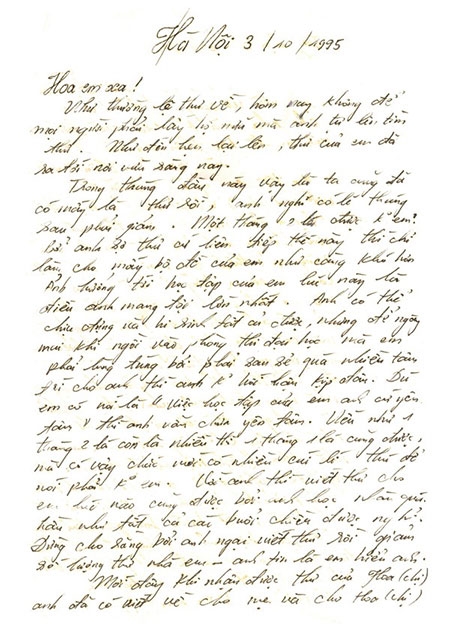 Hà Nội 3/10/1995
Hoa em xa!
Như thường lệ thư về, hôm nay không để
mọi người phải lấy hộ nữa mà anh tự lên tìm
thư. Như đến hẹn lại lên, thư của em đã
ra tới nơi vừa sáng nay.
Trong tháng đầu này vậy là ta cũng đã
có mấy lá thư rồi, anh nghĩ có lẽ tháng
sau phải giảm. Một tháng 2 lá được k° em?
Bởi anh sợ thư cứ liên tiếp thế này thì chỉ
làm cho mấy bộ đề của em như càng khó hơn
Ảnh hưởng tới học tập của em lúc này là
điều anh mang tội lớn nhất. Anh có thể
chịu đựng và hi sinh tất cả được, nhưng để ngày
mai khi ngồi vào phòng thi đại học mà em
phải lúng túng bởi phải san sẻ quá nhiều tâm
trí cho anh thì anh k° hối hận kịp đâu. Dù
em có nói là "Việc học tập của em anh cứ yên
tâm" thì anh vẫn chưa yên tâm. Nếu như 1
tháng 2 lá còn là nhiều thì 1 tháng 1 lá cũng được,
mà có vậy chắc mới có nhiều cái để thư để
nói phải k° em. Với anh thì viết thư cho
em lúc nào cũng được bởi anh học nhàn quá
hầu như tất cả các buổi chiều được nghỉ.
Đừng cho rằng bởi anh ngại viết thư rồi giảm
số lượng thư nhé em - anh tin là em hiểu anh.
Mới đây khi nhận được thư của Hoa (chị)
anh đã có viết về cho mẹ và cho Hoa (chị)